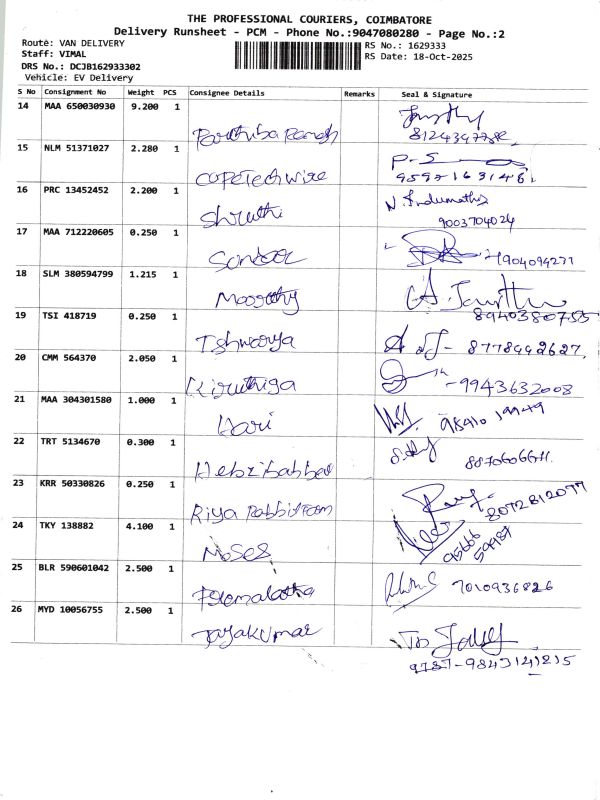 THE PROFESSIONAL COURIERS, COIMBATORE
Delivery Runsheet - PCM - Phone No.:9047080280 - Page No.:2
Route: VAN DELIVERY
RS No.: 1629333
Staff: VIMAL
RS Date: 18-Oct-2025
DRS No.: DCJB162933302
Vehicle: EV Delivery
S No Consignment No Weight PCS Consignee Details Remarks Seal & Signature
14 MAA 650030930 9.200 1
15 NLM 51371027 2.280 1
16 PRC 13452452 2.200 1 Shruthi N. Indumathi
9003704024
17 MAA 712220605 0.250 1
18 SLM 380594799 1.215 1 Moorthy
8940380755
19 TSI 418719 0.250 1 Ishwarya 8778442627
20 CMM 564370 2.050 1 Kiruthiga 9943632008
21 MAA 304301580 1.000 1 Hari 98410 19949
22 TRT 5134670 0.300 1
23 KRR 50330826 0.250 1 Riya 8072812077
24 TKY 138882 4.100 1 Moses
25 BLR 590601042 2.500 1 7010936826
26 MYD 10056755 2.500 1 Jayakumar